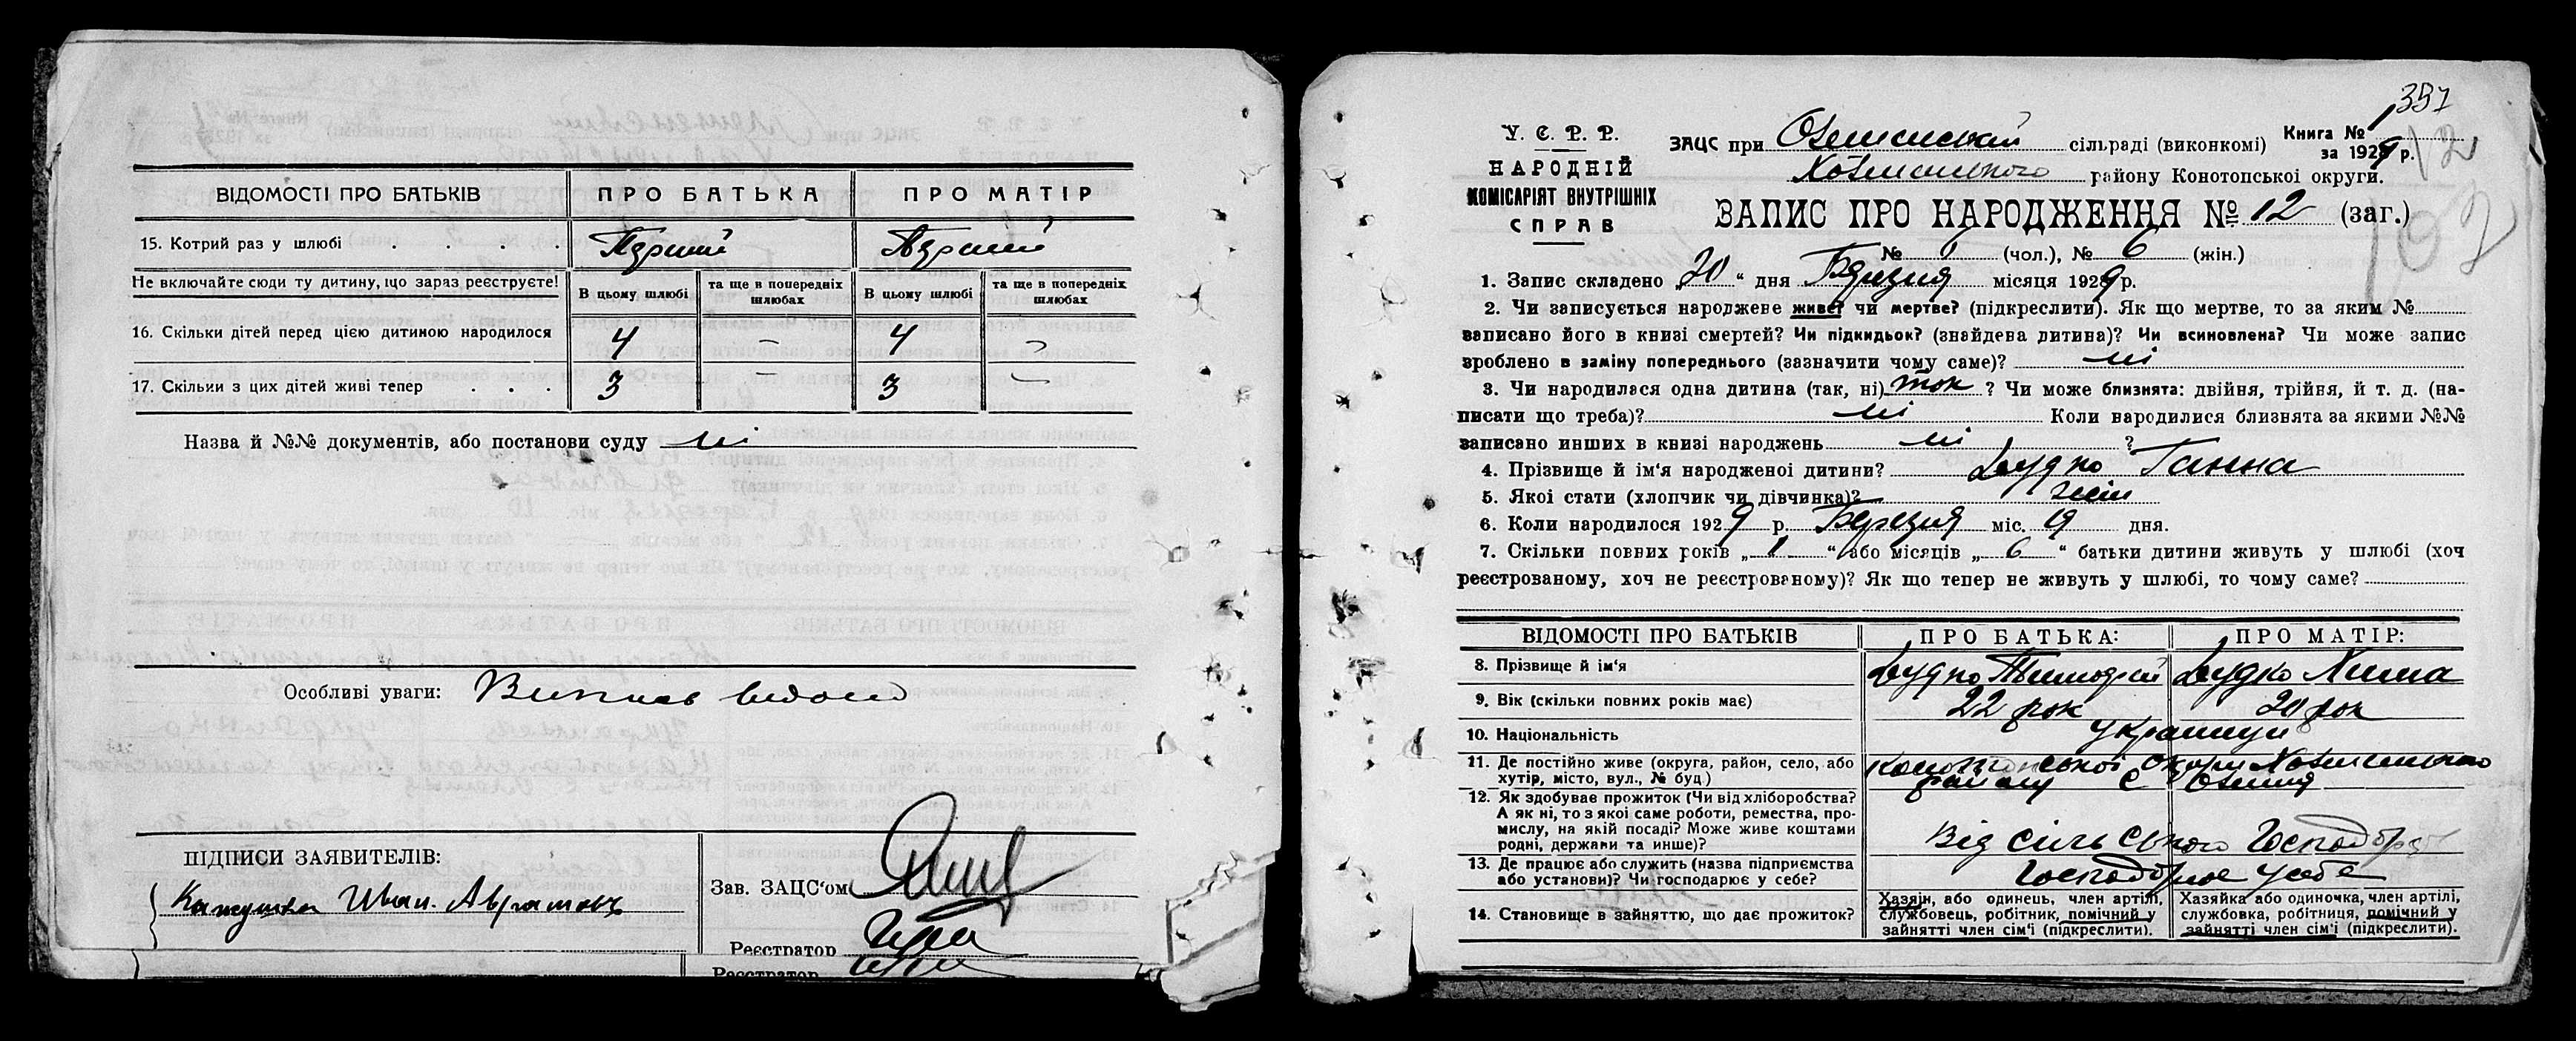 ВІДОМОСТІ ПРО БАТЬКІВ ПРО БАТЬКА ПРО МАТІР
15. Котрий раз у шлюбі . . . . Перший Перший
Не включайте сюди ту дитину, що зараз реєструєте! В цьому шлюбі та ще в попередніх шлюбах В цьому шлюбі та ще в попередніх шлюбах
16. Скільки дітей перед цією дитиною народилося 4 — 4 —
17. Скільки з цих дітей живі тепер . . . 3 — 3 —
Назва й №№ документів, або постанови суду ні
Особливі уваги:
ПІДПИСИ ЗАЯВИТЕЛІВ:
Иван Аврамовч
Зав. ЗАЦС'ом
Реєстратор
Реєстратор
357
У. С. Р. Р.
НАРОДНІЙ
КОМІСАРІЯТ ВНУТРІШНІХ
СПРАВ
ЗАЦС при сільраді (виконкомі) Книга № 1
за 1929 р.
району Конотопської округи.
ЗАПИС ПРО НАРОДЖЕННЯ № 12 (заг.)
№ (чол.), № 6 (жін.)
1. Запис складено „20“ дня Березня місяця 1929 р.
2. Чи записується народжене живе? чи мертве? (підкреслити). Як що мертве, то за яким №
записано його в книзі смертей? Чи підкидьок? (знайдена дитина)? Чи всиновлена? Чи може запис
зроблено в заміну попереднього (зазначити чому саме)? ні
3. Чи народилася одна дитина (так, ні) так ? Чи може близнята: двійня, трійня, й т. д. (на-
писати що треба)? ні Коли народилися близнята за якими №№
записано инших в книзі народжень ні ?
4. Прізвище й ім'я народженої дитини? Дудко Ганна
5. Якої статі (хлопчик чи дівчинка)? жін
6. Коли народилося 1929 р. Березня міс. 19 дня.
7. Скільки повних років „1“ або місяців „6“ батьки дитини живуть у шлюбі (хоч
реєстрованому, хоч не реєстрованому)? Як що тепер не живуть у шлюбі, то чому саме?
ВІДОМОСТІ ПРО БАТЬКІВ ПРО БАТЬКА: ПРО МАТІР:
8. Прізвище й ім'я Дудко Тимофій Дудко Хима
9. Вік (скільки повних років має) 22 рок 20 рок
10. Національність українці
11. Де постійно живе (округа, район, село, або
хутір, місто, вул., № буд.) Конотопської округи району с
12. Як здобуває прожиток (Чи від хліборобства?
А як ні, то з якої саме роботи, ремества, про-
мислу, на якій посаді? Може живе коштами
родні, держави та инше)? Від сільського господорст
13. Де працює або служить (назва підприємства
або установи)? Чи господарює у себе? господорює у себе
14. Становище в зайняттю, що дає прожиток?
Хазяїн, або одинець, член артілі, службовець, робітник, помічний у зайнятті член сім'ї (підкреслити).
Хазяйка або одиночка, член артілі, службовка, робітниця, помічний у зайнятті член сім'ї (підкреслити).